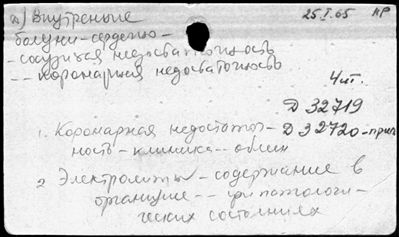 а) Внутренние 25.I.65 НР
болезни-сердечно-
-сосудистая недостаточность
-- коронарная недостаточность
4 шт.
Д 32719
1. Коронарная недостаточ- Д 32720-прил
ность-клиника--облик
2 Электролиты-содержание в
организме--при патологи-
ческих состояниях